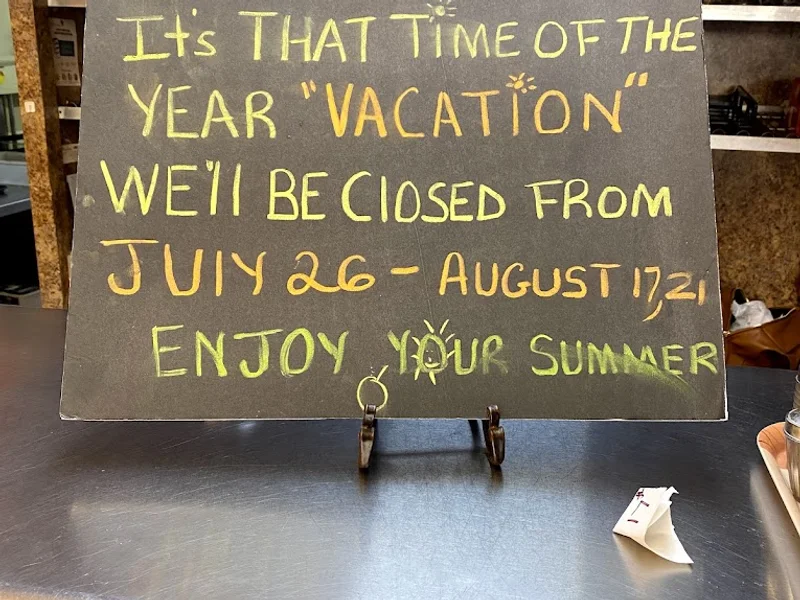 It's THAT TIME OF THE
YEAR "VACATION"
WE'll BE ClOSED FROM
JUlY 26 - AUGUST 17, 21
ENJOY YOUR SUMMER